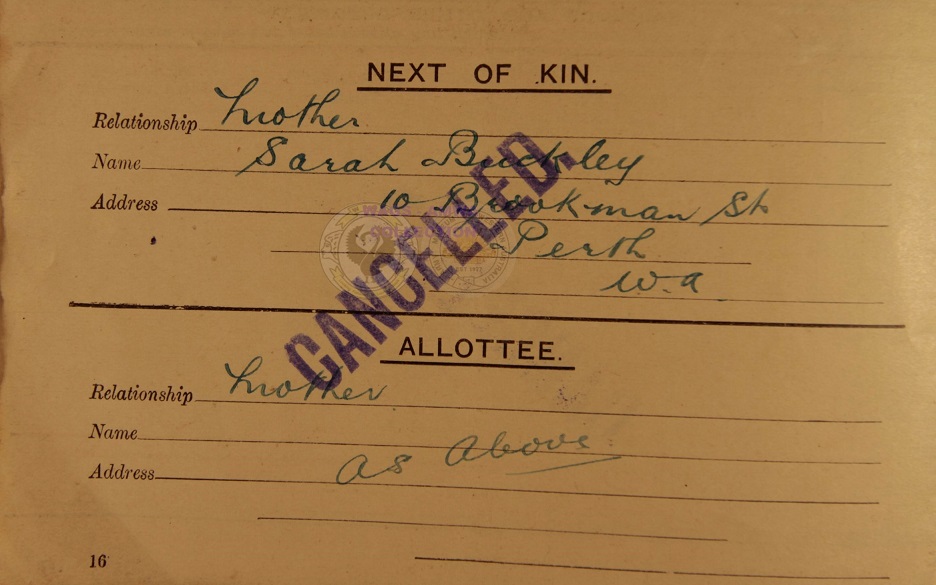 NEXT OF KIN.
Relationship Mother
Name Sarah Buckley
Address 10 Brookman St
Perth
W.A.
CANCELLED.
ALLOTTEE.
Relationship Mother
Name
Address As Above
16